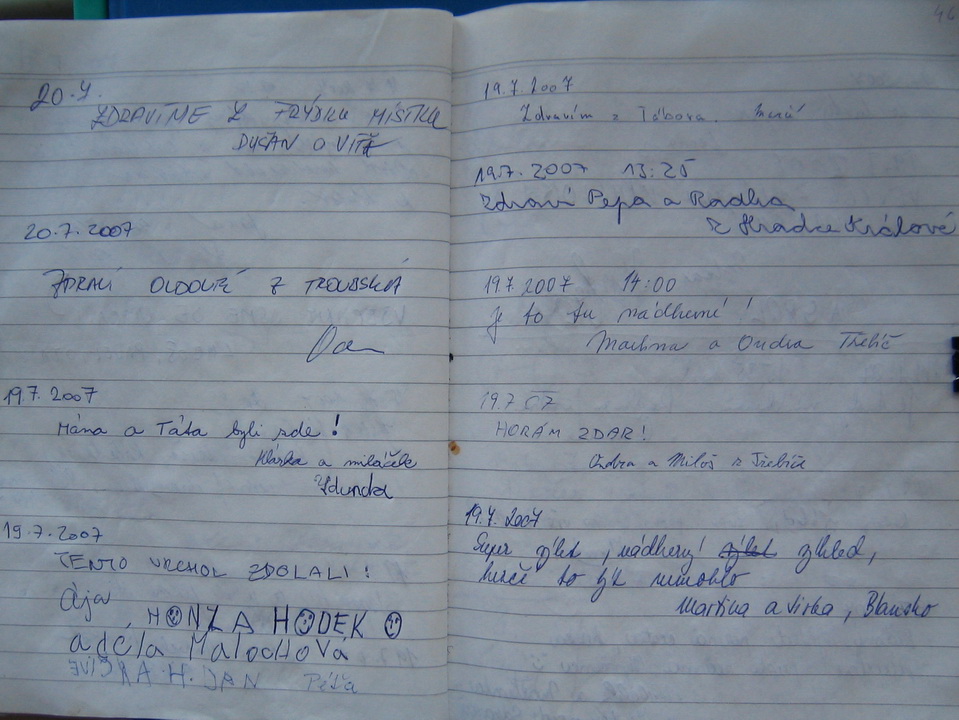 20.7.
ZDRAVÍME Z FRÝDKU MÍSTKU
DUŠAN A VÍŤA
20.7.2007
ZDRAVÍ Z TROUBSKA
19.7.2007
Máma a Táta byli zde!
Klárka a miláček
Zdunda
19.7.2007
TENTO VRCHOL ZDOLALI!
Ája
HONZA HODEK
adéla Malochova
EVIČKA H. JAN Péťa
44
19.7.2007
Zdravím z Tábora.
19.7.2007 13:25
Zdraví Pepa a Radka
z Hradce Králové
19.7.2007 14:00
je to tu nádherné!
Martina a Ondra Třebíč
19.7.07
HORÁM ZDAR!
Ondra a Miloš z Třebíče
19.7.2007
Super výlet, nádherný výhled,
to být nemohlo
Martina a Mirka, Blansko